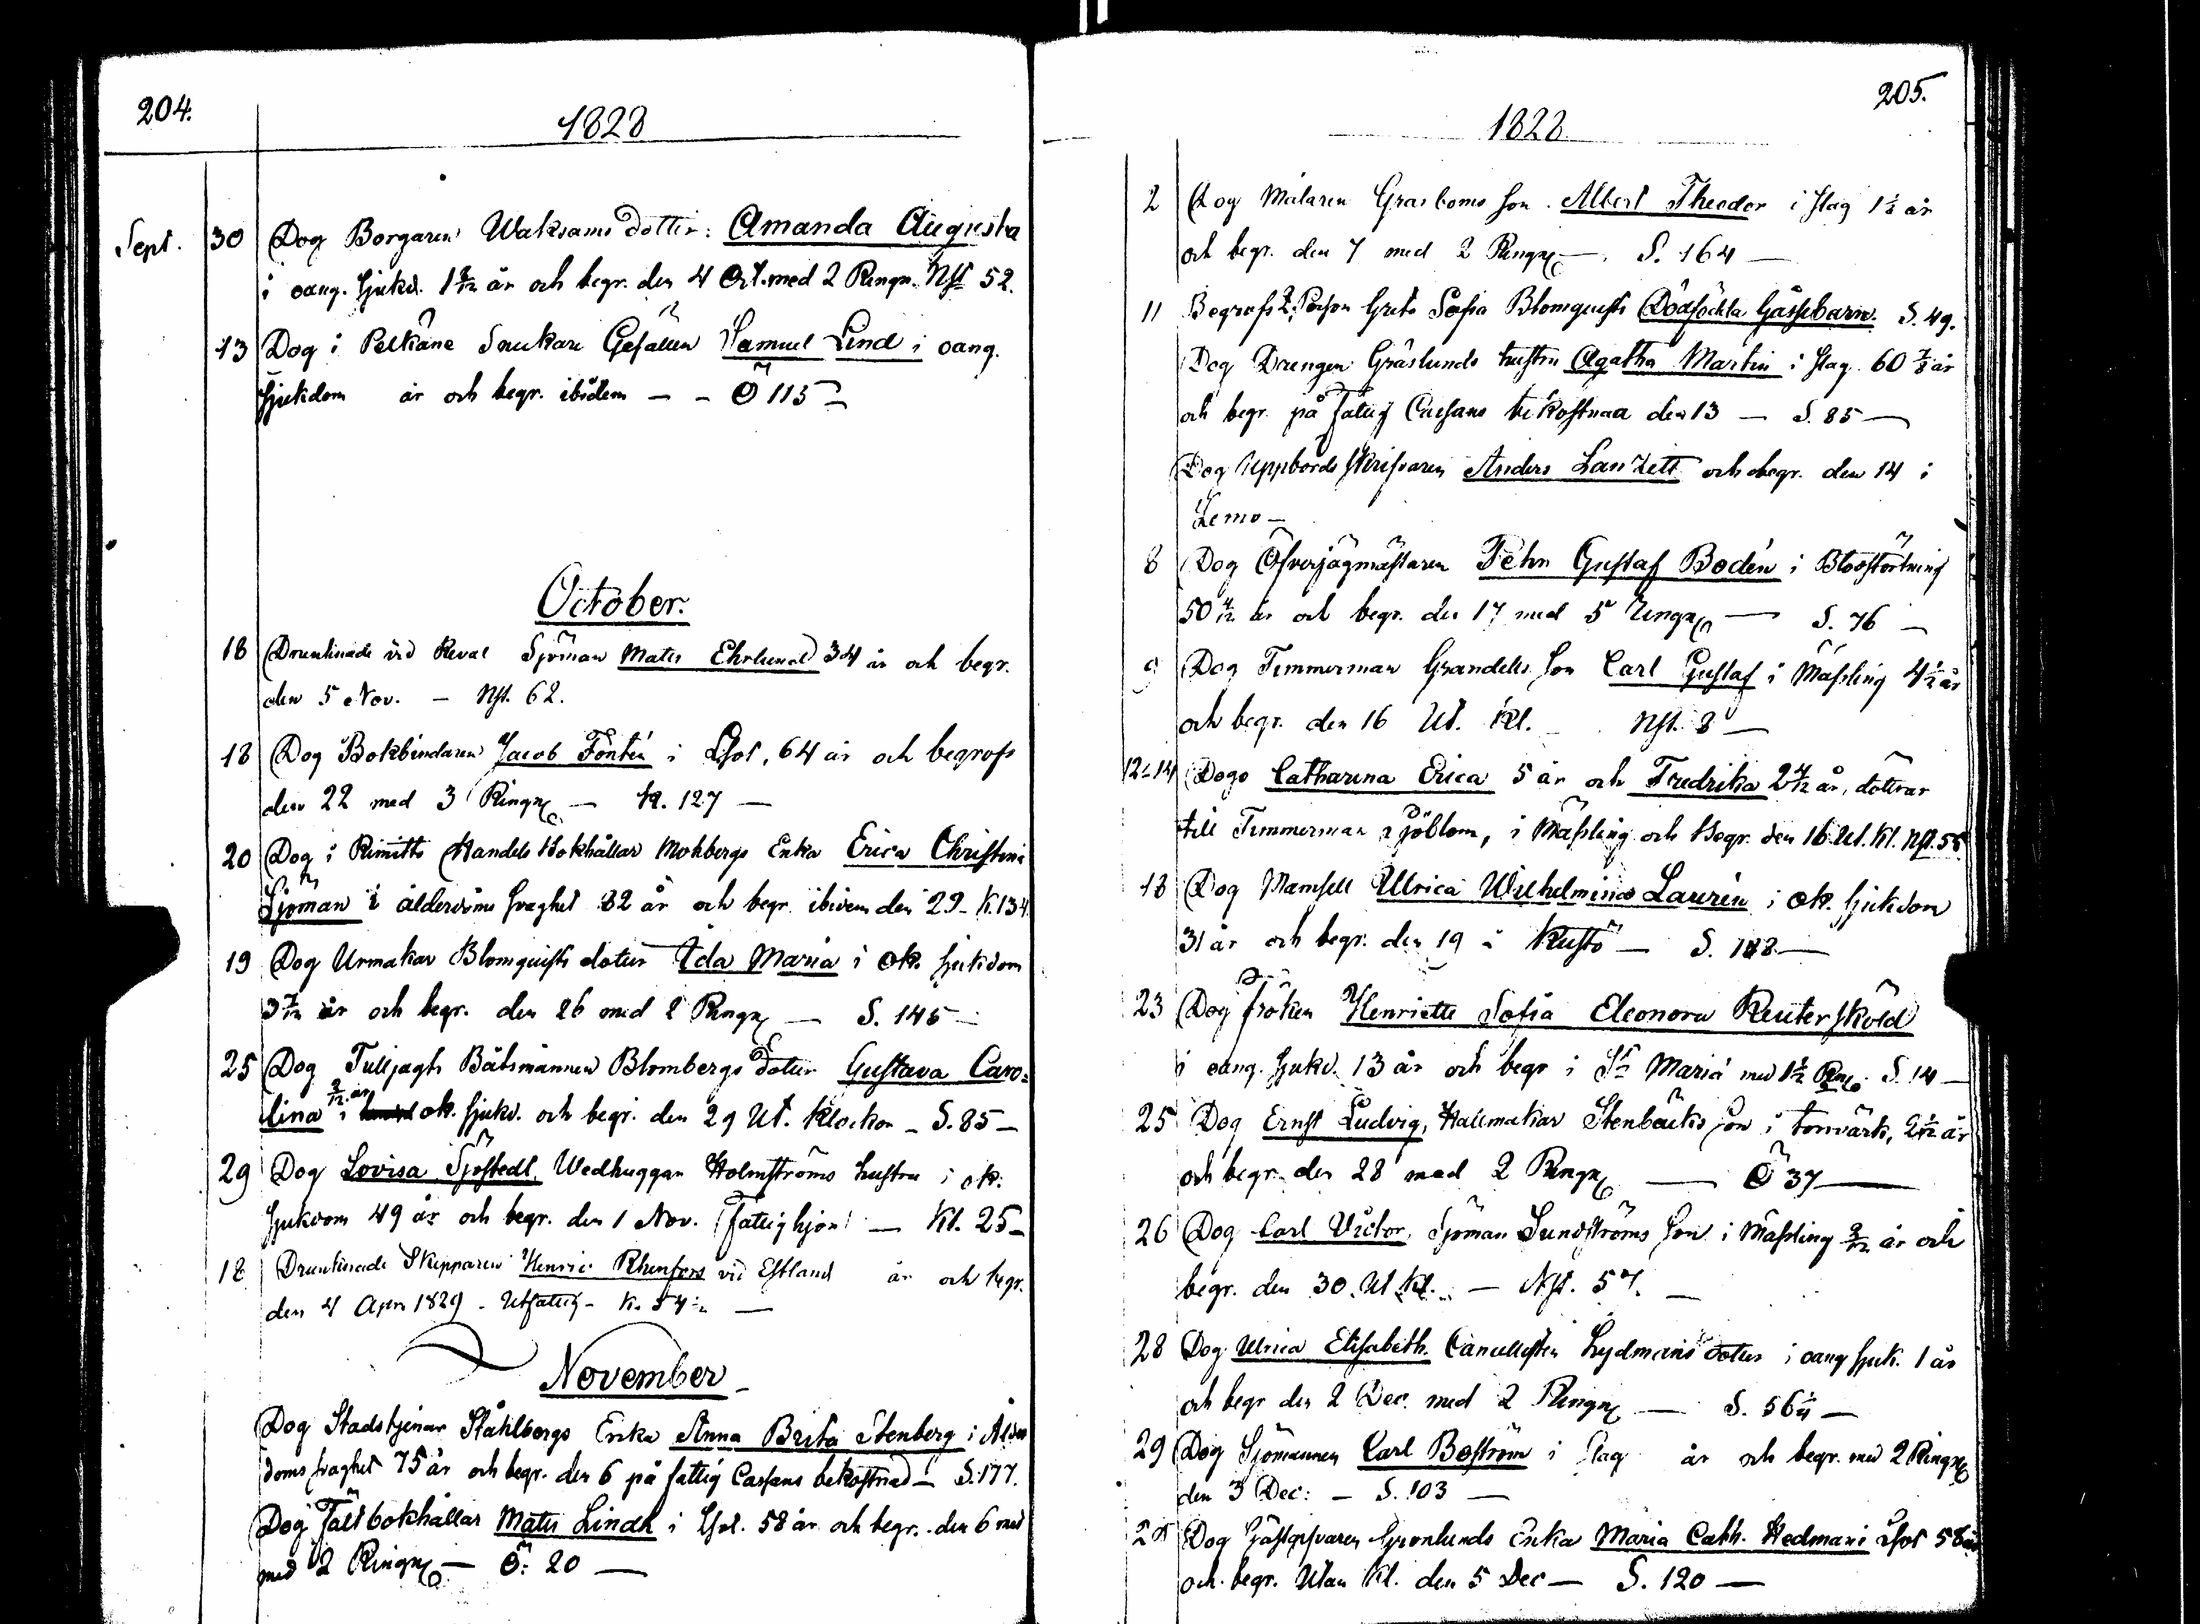 204.
1828
Sept. 30 Dog Borgaren Waksams dotter: Amanda Augusta
i oang. sjukd. 1 8/12 år och begr. den 4 Oct. med 2 Ringn. Nst 52.
13 Dog i Pelkäne Snickare Gesällen Samuel Lind i oang.
sjukdom år och begr. ibidem — - Ö 115 —
October.
18 Drunknade vid Reval Sjöman Mats Ehrlund 34 år och begr.
den 5 Nov. — Nst. 62.
18 Dog Bokbindaren Jacob Fontin i Lsot, 64 år och begrofs
den 22 med 3 Ringn — K. 127 —
20 Dog i Rimitto Handels Bokhållar Mohbergs Enka Erica Christina
Sjöman i ålderdoms svaghet 82 år och begr. ibidem den 29 - K. 134
19 Dog Urmakar Blomquists doter Ida Maria i ok. sjukdom
3 7/12 år och begr. den 26 med 2 Ringn — S. 145 —
25 Dog Tulljagts Båtsmannen Blombergs doter Gustava Caro-
lina 2/12 år i ok. sjukd. och begr. den 29 Ut. Klockor — S. 85 —
29 Dog Lovisa Sjöstedt, Wedhuggar Holmströms hustru i ok.
sjukdom 49 år och begr. den 1 Nov. (fattighjon) — Kl. 25 —
18 Drunknade Skepparen Henric Rhenfors vid Estland år och begr.
den 4 Apr. 1829 - Utfattig - K. 54 1/2 —
November
Dog Stadstjenar Ståhlbergs Enka Anna Brita Stenberg i Ålder
doms svaghet 75 år och begr. den 6 på fattig Cassans bekostnad — S. 177.
Dog Fältbokhållar Mats Lindh i Lsot. 58 år och begr. den 6 med
med 2 Ringn — Ö: 20 —
205.
1828
2 Dog Målaren Grasboms son Albert Theodor i slag 1 1/2 år
och begr. den 7 med 2 Ringn — S. 164 —
11 Begrofs Greta Sofia Blomquists Dödfödda Gåssebarn. S. 49.
Dog Drengen Gräslunds hustru Agatha Martin i slag 60 år
och begr. på fattig Cassans bekostnad den 13 — S. 85 —
Dog Uppbördsskrifvaren Anders Lanzett och begr. den 14 i
Lemo —
8 Dog Öfverjägmästaren Pehr Gustaf Bodén i Blodstörtning
50 4/12 år och begr. den 17 med 5 Ringn — S. 76 —
9 Dog Timmerman Grandells son Carl Gustaf i Mässling 4 1/2 år
och begr. den 16 Ut. Kl. — Nst. 8 —
12 - 14 Dogo Catharina Erica 5 år och Fredrika 2 4/12 år, döttrar
till Timmerman Sjöblom, i Mässling och Begr. den 16 Ut. Kl. Nst. 55.
13 Dog Mamsell Ulrica Wilhelmina Laurén i ok. sjukdom
31 år och begr. den 19 i Kustö — S. 188 —
23 Dog fröken Henriette Sofia Eleonora Reutersköld
i oang. sjukd. 13 år och begr i St Mariæ med 1 1/2 Rn S. 14 —
25 Dog Ernst Ludvig, Hattmakar Stenbäcks son i torrvärk, 2 1/12 år
och begr. den 28 med 2 Ringn — Ö 37 —
26 Dog Carl Victor, Sjöman Sundströms son i Mässling 9/12 år och
begr. den 30. Ut Kl. — Nst. 57. —
28 Dog Ulrica Elisabeth, Cancellisten Lydmans doter i oang sjuk. 1 år
och begr den 2 Dec. med 2 Ringn — S. 56 1/4 —
29 Dog Sjömannen Carl Boström i slag år och begr. med 2 Ringn
den 3 Dec: — S. 103 —
Dog Gästgifvaren Grönlunds Enka Maria Cath. Hedman i Lsot 58 år
och begr. Utan Kl. den 5 Dec — S. 120 —